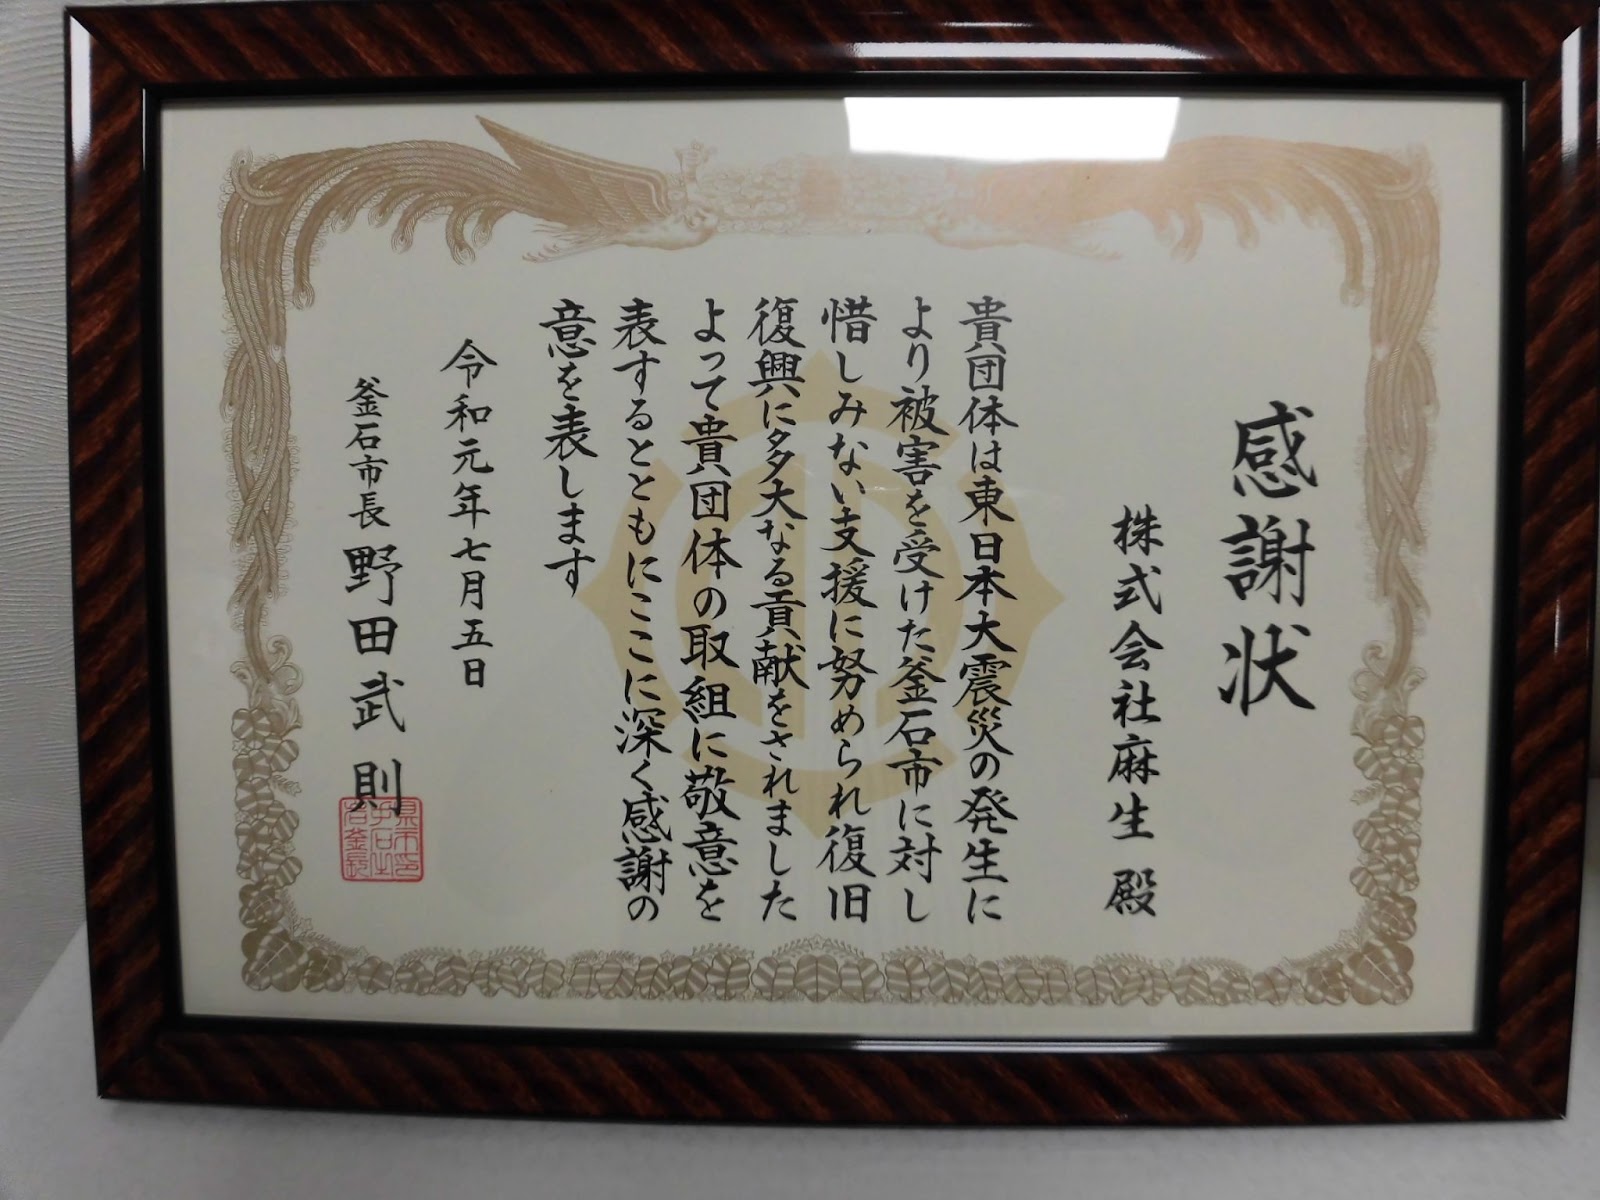 感謝状
株式会社麻生 殿
貴団体は東日本大震災の発生に
より被害を受けた釜石市に対し
惜しみない支援に努められ復旧
復興に多大なる貢献をされました
よって貴団体の取組に敬意を
表するとともにここに深く感謝の
意を表します
令和元年七月五日
釜石市長 野田武則